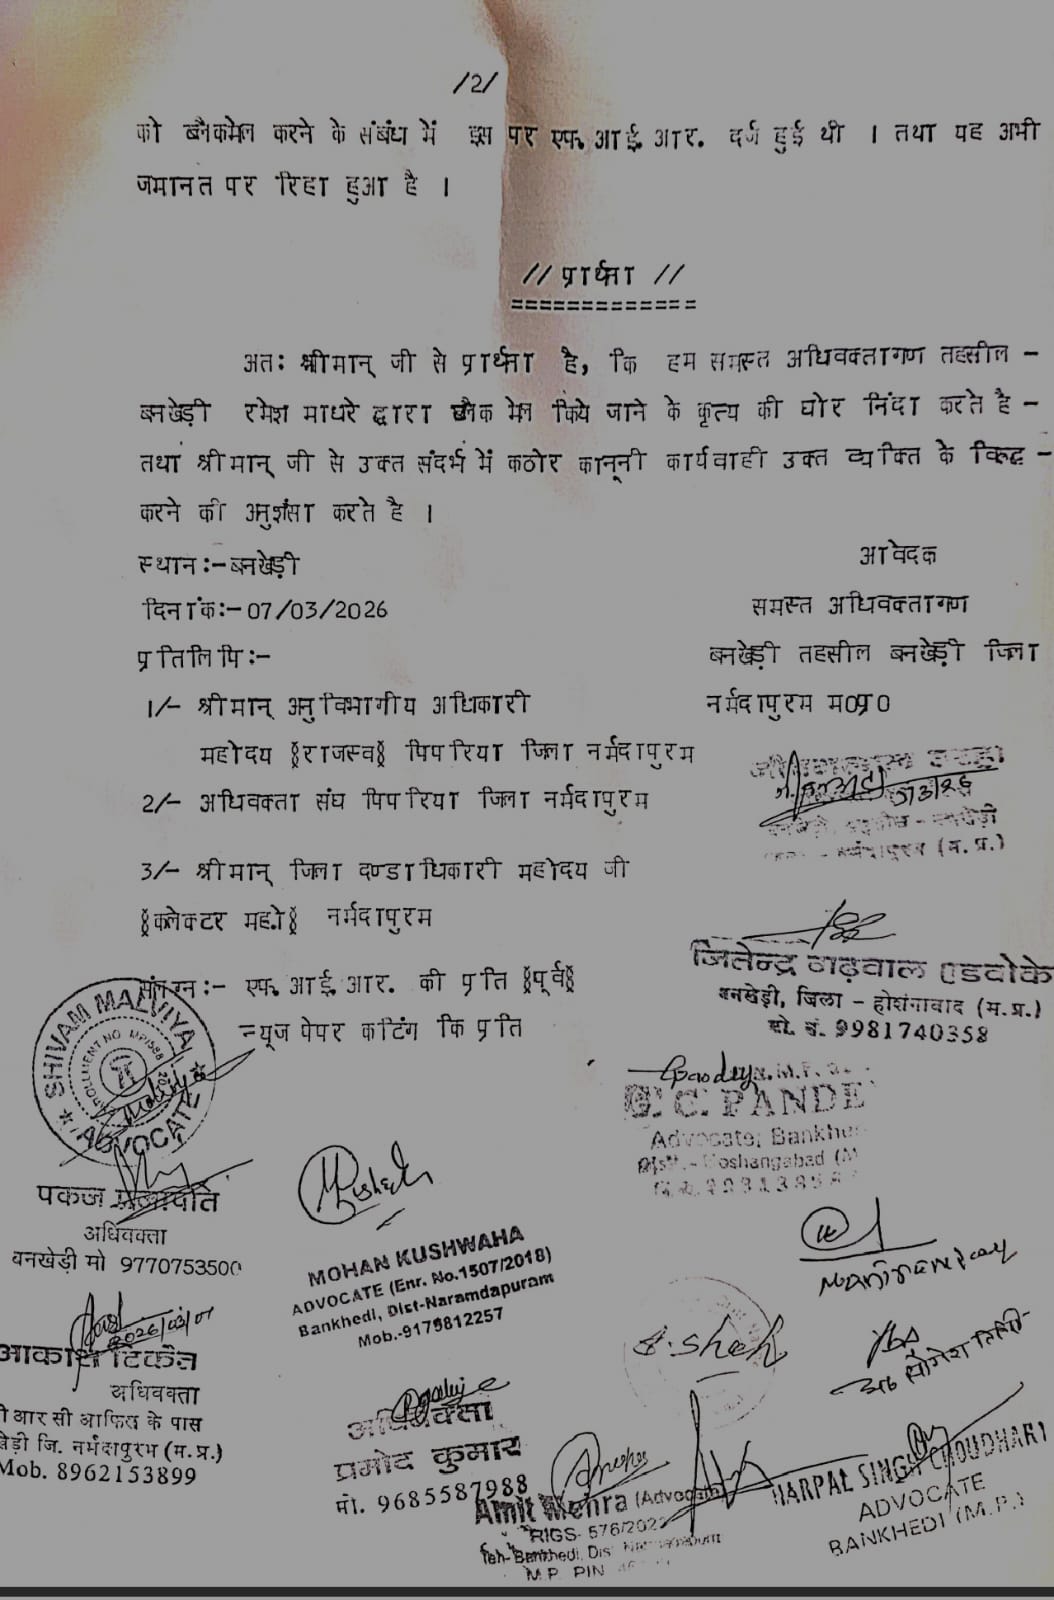 /2/
को ब्लैकमेल करने के संबंध में इस पर एफ.आई.आर. दर्ज हुई थी । तथा यह अभी
जमानत पर रिहा हुआ है ।
// प्रार्थना //
=============
अतः श्रीमान् जी से प्रार्थना है, कि हम समस्त अधिवक्तागण तहसील -
बनखेड़ी रमेश माधरे द्वारा ब्लैक मेल किये जाने के कृत्य की घोर निंदा करते है -
तथा श्रीमान् जी से उक्त संदर्भ में कठोर कानूनी कार्यवाही उक्त व्यक्ति के विरूद्ध -
करने की अनुशंसा करते है ।
स्थान :- बनखेड़ी
आवेदक
दिनांक:- 07/03/2026
समस्त अधिवक्तागण
प्रतिलिपि :-
बनखेड़ी तहसील बनखेड़ी जिला
1/- श्रीमान् अनुविभागीय अधिकारी
नर्मदापुरम म0प्र0
महोदय §राजस्व§ पिपरिया जिला नर्मदापुरम
2/- अधिवक्ता संघ पिपरिया जिला नर्मदापुरम
3/- श्रीमान् जिला दण्डाधिकारी महोदय जी
§कलेक्टर महो§ नर्मदापुरम
संलग्न :- एफ.आई.आर. की प्रति §पूर्व§
न्यूज पेपर कटिंग कि प्रति
बनखेड़ी
नर्मदापुरम (म.प्र.)
जितेन्द्र गढ़वाल एडवोके
बनखेड़ी, जिला - होशंगाबाद (म.प्र.)
मो. नं. 9981740358
SHIVAM MALVIYA
ADVOCATE
C. PANDE
Advocate, Bankhe
Distt.- Hoshangabad (M
पंकज प्रजापति
अधिवक्ता
बनखेड़ी मो 9770753500
MOHAN KUSHWAHA
ADVOCATE (Enr. No.1507/2018)
Bankhedi, Dist-Naramdapuram
Mob.-9179812257
2026/03/07
आकाश टिकेत
अधिवक्ता
आर सी आफिस के पास
खेड़ी जि. नर्मदापुरम (म.प्र.)
Mob. 8962153899
अधिवक्ता
प्रमोद कुमार
मो. 9685587988
Amit Mehra (Advocate)
Teh- Bankhedi, Dis
M.P. PIN
HARPAL SINGH CHOUDHARY
ADVOCATE
BANKHEDI (M.P.)